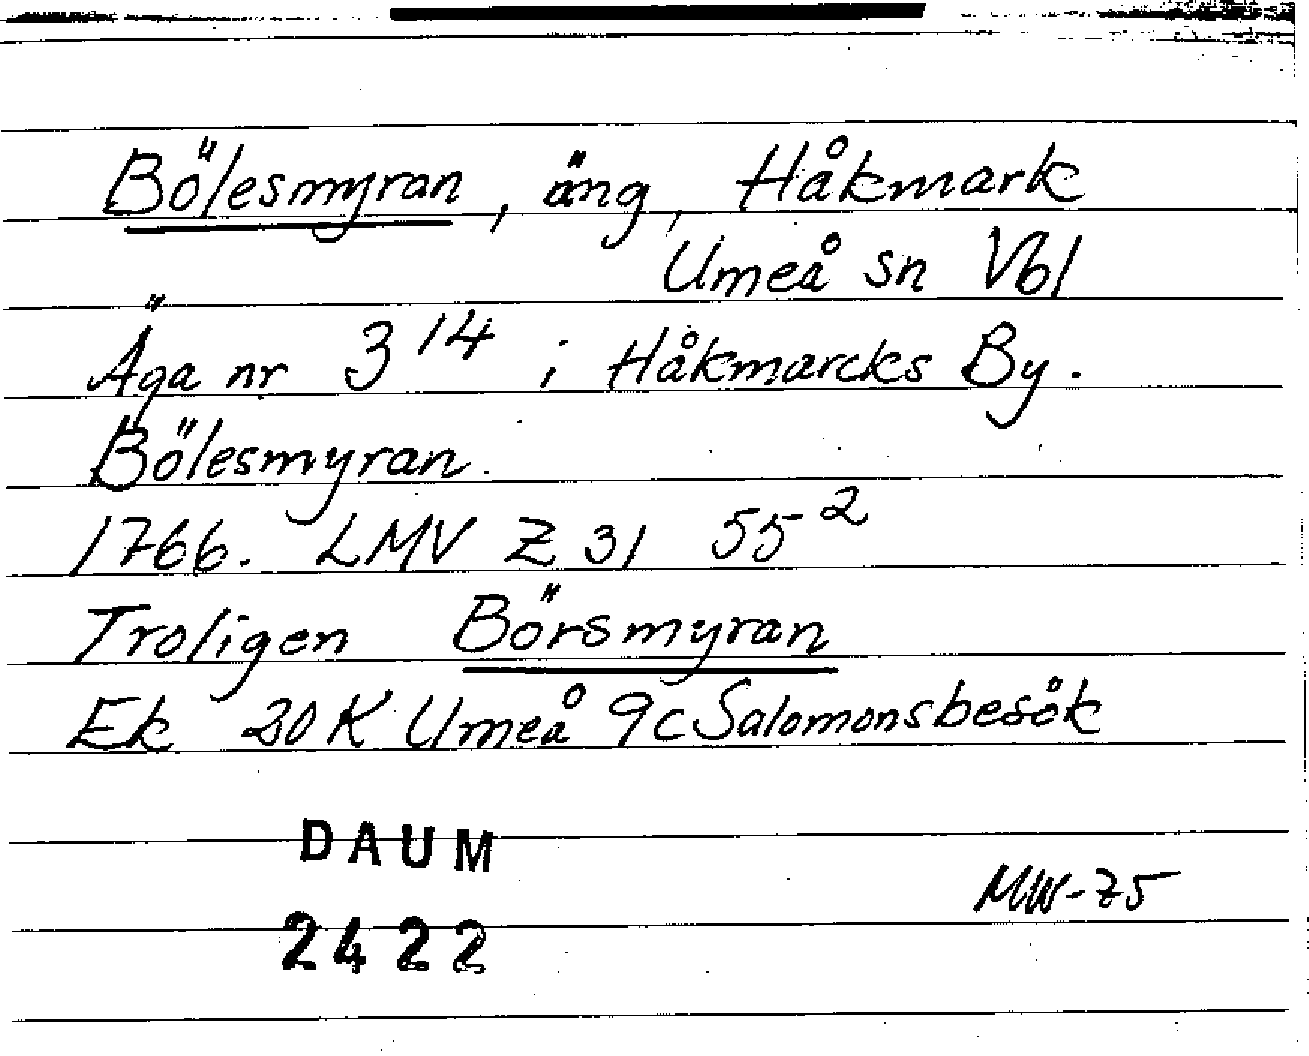 Bölesmyran, äng, Håkmark
Umeå sn Vbl
Äga nr 3 14 i Håkmarcks By.
Bölesmyran.
1766. LMV Z 31 55²
Troligen Börsmyran
Ek 20 K Umeå 9c Salomonsbesök
DAUM
MW-75
2422